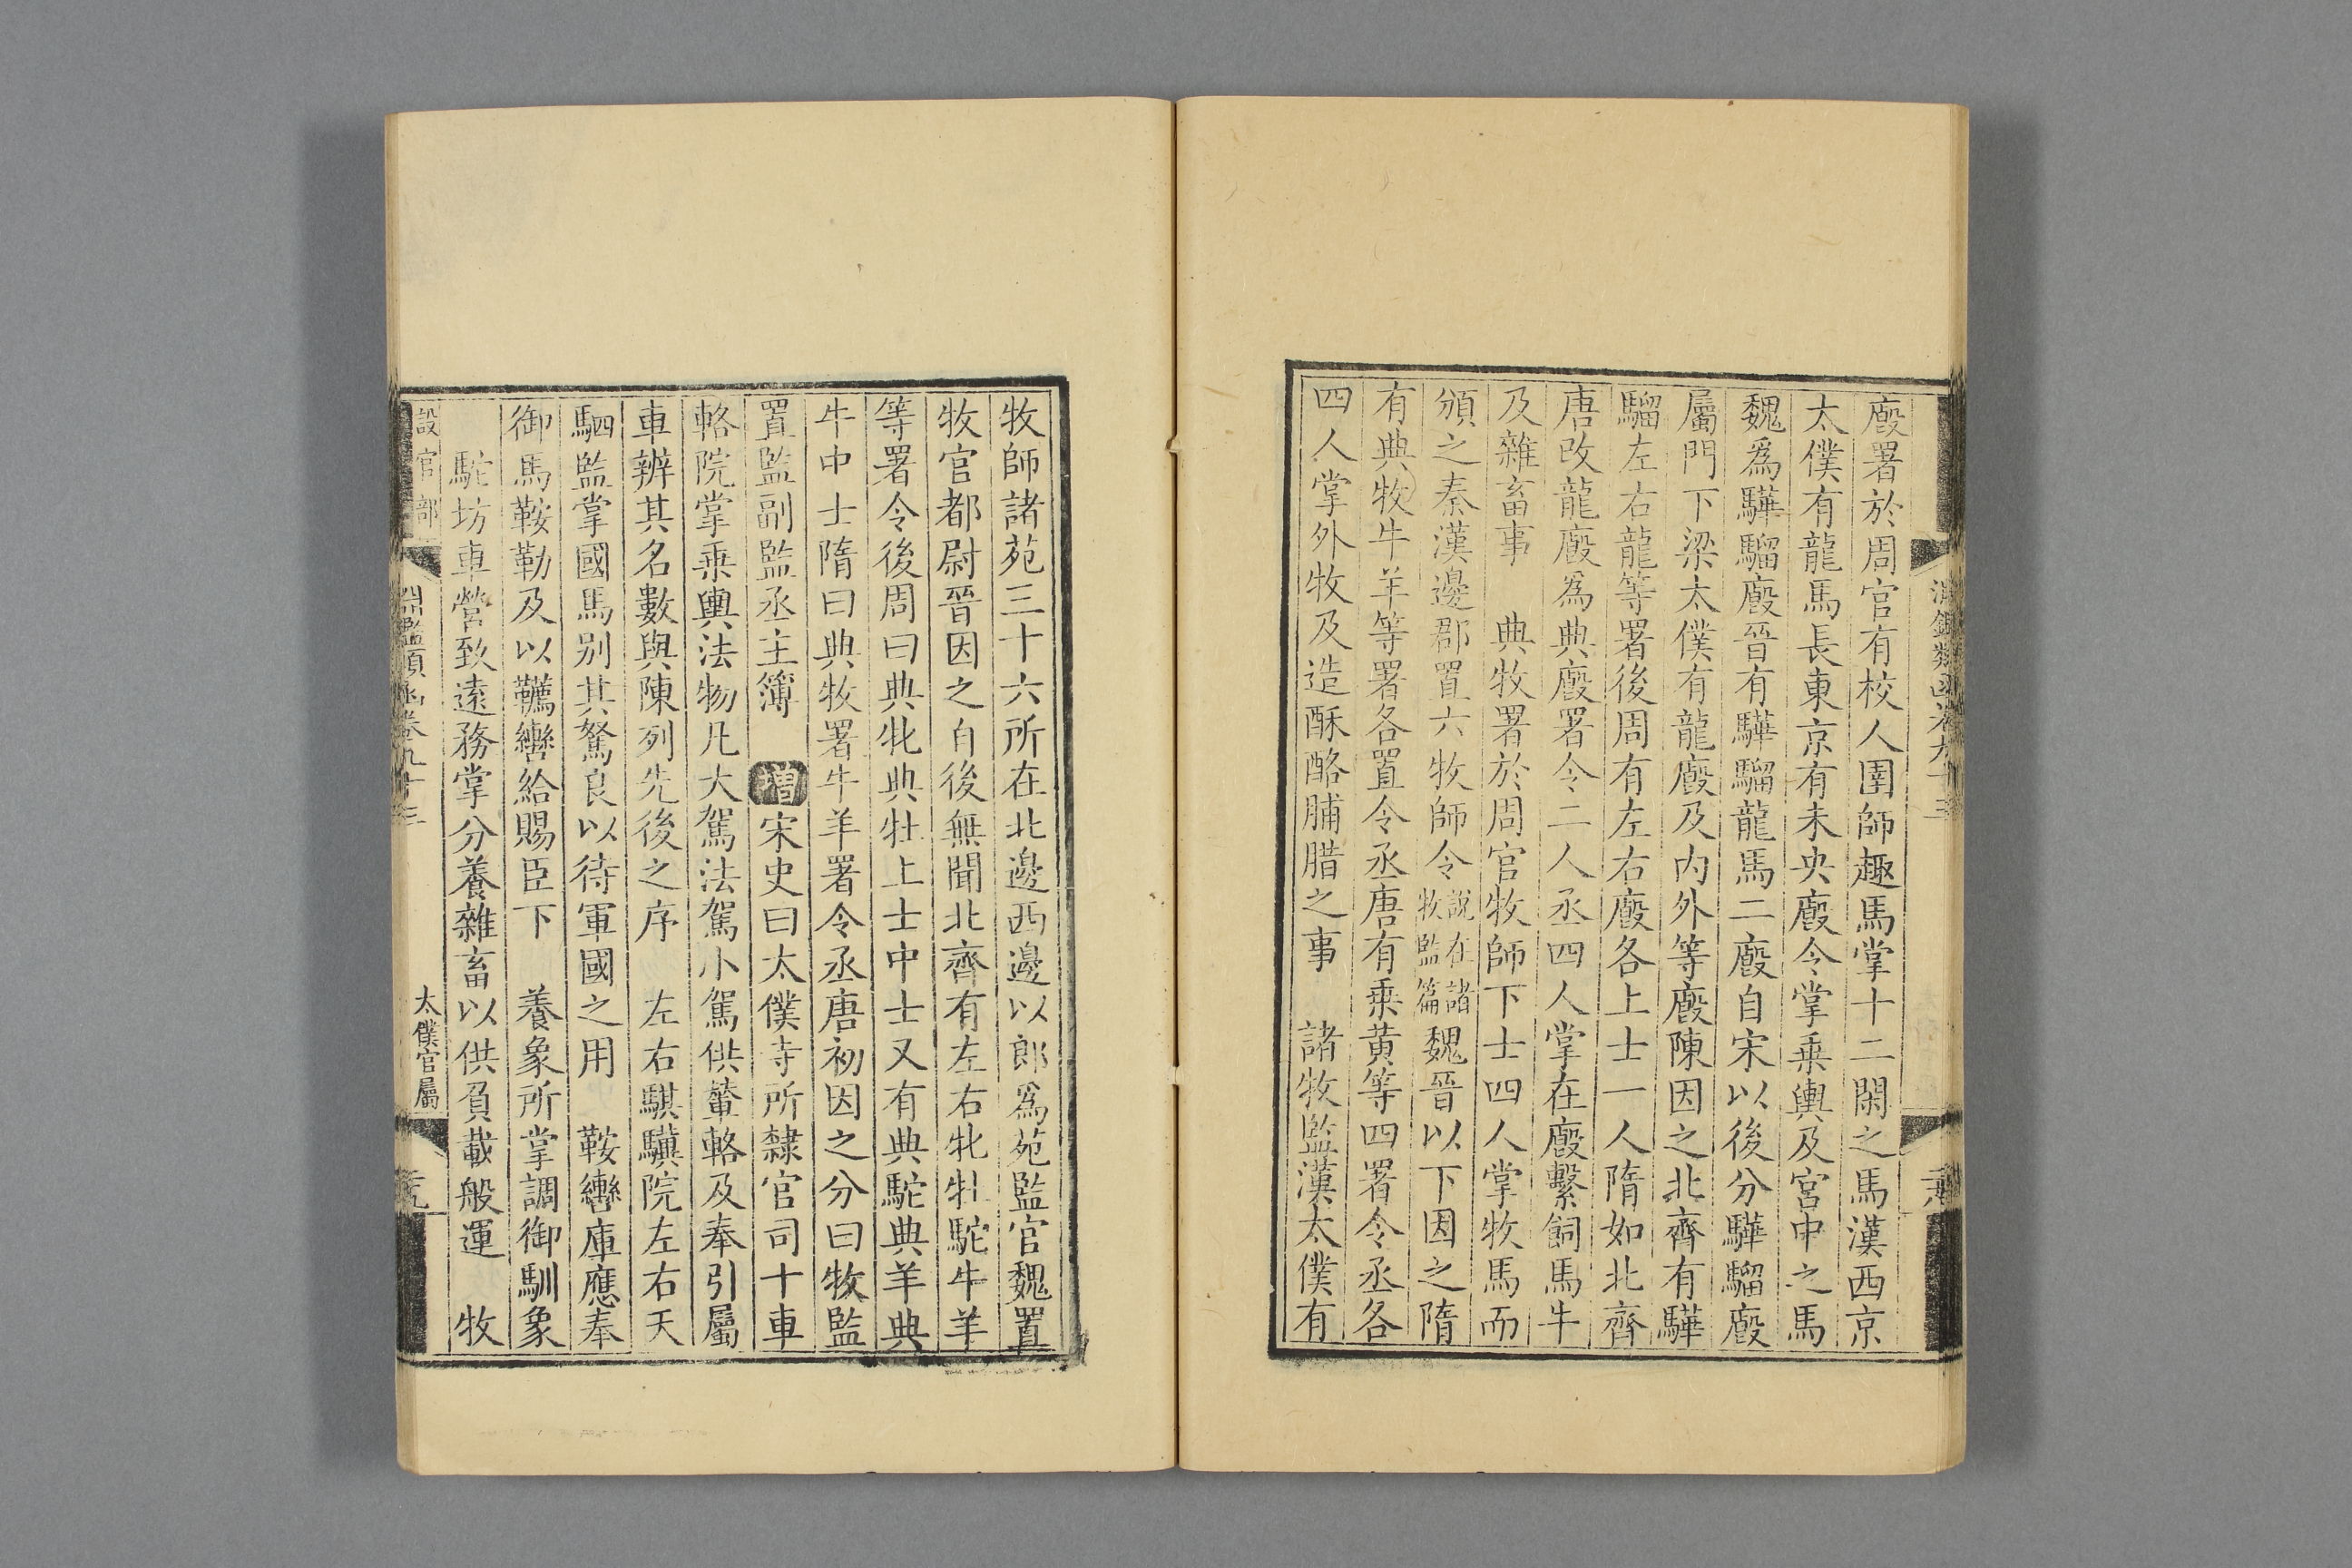 廄署於周官有校人圉師趣馬掌十二閑之馬漢西京
太僕有龍馬長東京有未央廄令掌乗輿及宮中之馬
魏爲驊騮廄晉有驊騮龍馬二廄自宋以後分驊騮廄
屬門下梁太僕有龍廄及内外等廄陳因之北齊有驊
騮左右龍等署後周有左右廄各上士一人隋如北齊
唐改龍廄爲典廄署令二人丞四人掌在廄繫飼馬牛
及雜畜事　典牧署於周官牧師下士四人掌牧馬而
頒之秦漢邊郡置六牧師令説在諸牧監篇魏晉以下因之隋
有典牧牛羊等署各置令丞唐有乗黄等四署令丞各
四人掌外牧及造酥酪脯腊之事　諸牧監漢太僕有
牧師諸苑三十六所在北邊西邊以郎爲苑監官魏置
牧官都尉晉因之自後無聞北齊有左右牝牡駝牛羊
等署令後周曰典牝典牡上士中士又有典駝典羊典
牛中士隋曰典牧署牛羊署令丞唐初因之分曰牧監
置監副監丞主簿　增宋史曰太僕寺所隸官司十車
輅院掌乗輿法物凡大駕法駕小駕供輦輅及奉引屬
車辨其名數與陳列先後之序　左右騏驥院左右天
駟監掌國馬别其駑良以待軍國之用　鞍轡庫應奉
御馬鞍勒及以韉轡給賜臣下　養象所掌調御馴象
駝坊車營致遠務掌分養雜畜以供負載般運　牧
設官部
淵鑑類函卷九十三
太僕官屬